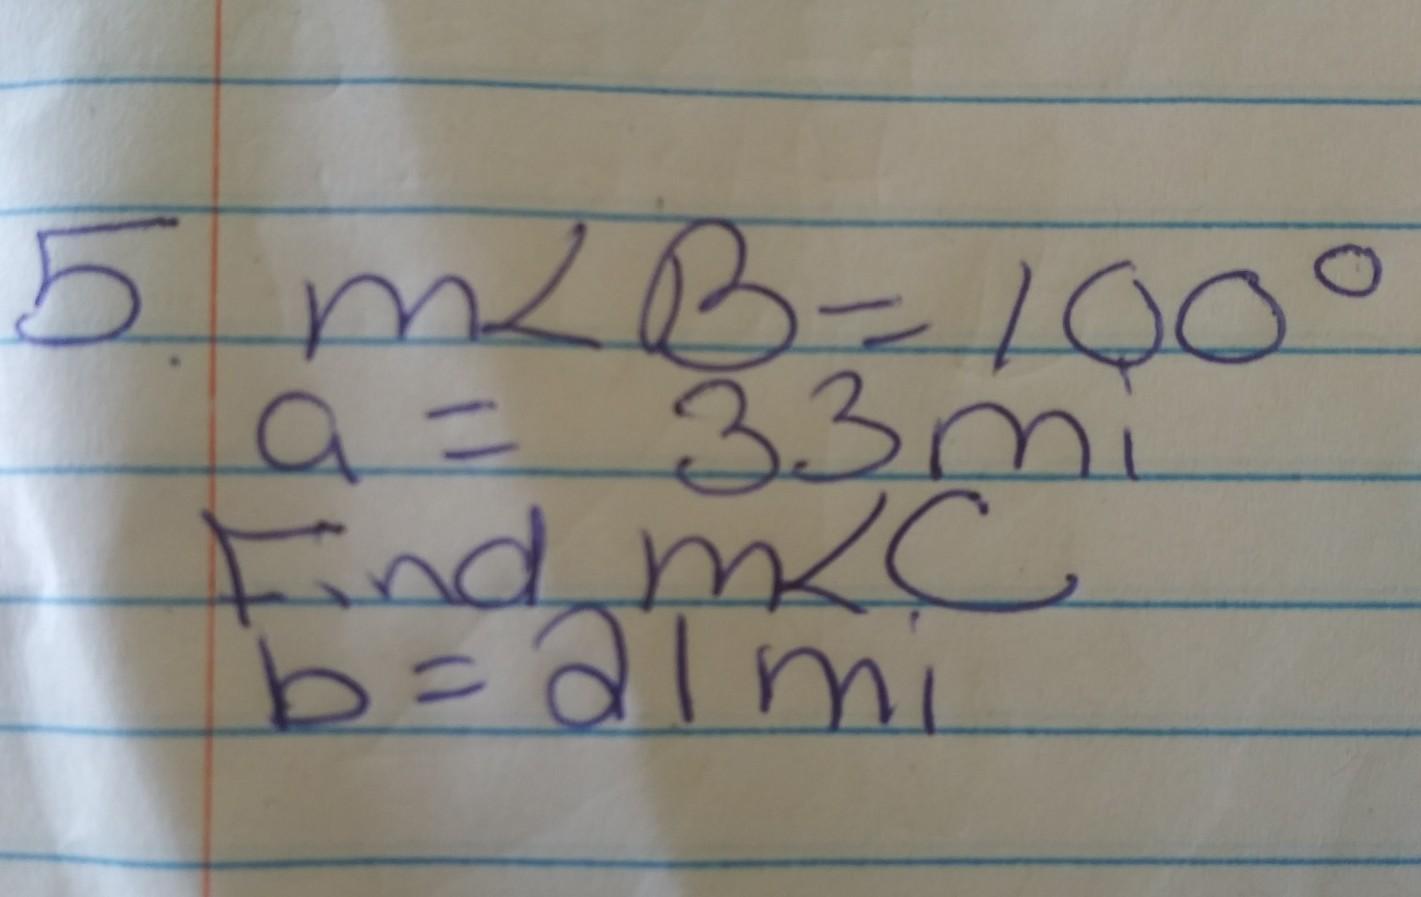 5. m<B=100°
a = 33mi
Find m<C
b=21mi